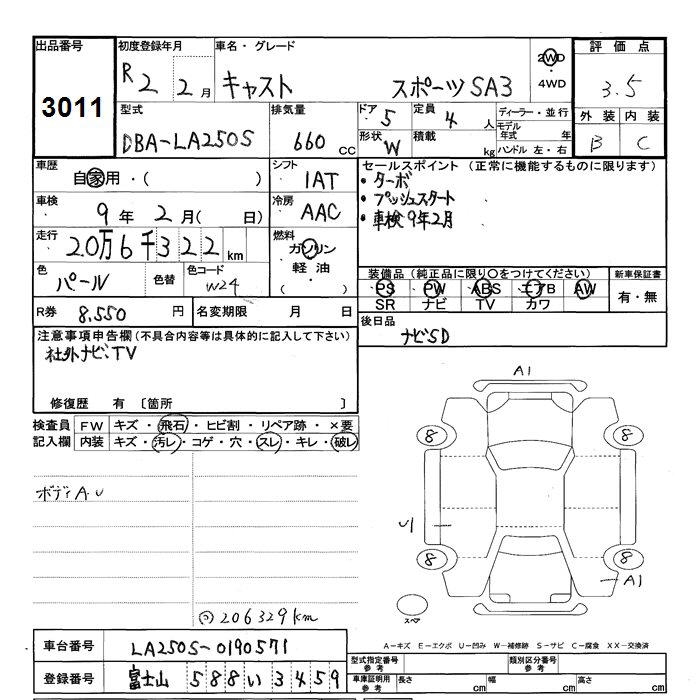 出品番号 3011
初度登録年月 R2 2月
車名・グレード キャスト スポーツSA3
2WD ・ 4WD
評価点 3.5
型式 DBA-LA250S
排気量 660 CC
ドア 5 定員 4人
形状 W 積載 kg
ディーラー・並行
モデル年式 年
ハンドル 左・右
外装 内装
B C
車歴 自家用・( )
シフト IAT
車検 9年 2月( 日)
冷房 AAC
走行 20万6千322km
燃料 ガソリン 軽油・( )
色 パール 色替 色コード W24
セールスポイント (正常に機能するものに限ります)
・ターボ
・プッシュスタート
・車検9年2月
装備品(純正品に限り○をつけてください)
PS PW ABS エアB AW
SR ナビ TV カワ
新車保証書
有・無
R券 8,550 円
名変期限 月 日
後日品
ナビSD
注意事項申告欄(不具合内容等は具体的に記入して下さい)
社外ナビ、TV
修復歴 有 〔箇所 〕
検査員記入欄
FW キズ・飛石・ヒビ割・リペア跡・×要
内装 キズ・汚レ・コゲ・穴・スレ・キレ・破レ
ボディA.U
◎206329km
A1
8 8
U1
8 8
A1
スペア
A−キズ E−エクボ U−凹み W−補修跡 S−サビ C−腐食 XX−交換済
車台番号 LA250S-0190571
登録番号 富士山 588い3459
型式指定番号 参考
類別区分番号 参考
車庫証明用 参考 長さ cm 幅 cm 高さ cm